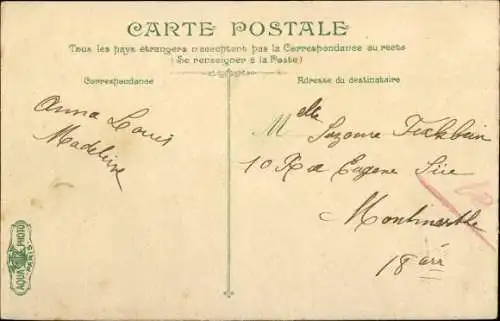 CARTE POSTALE
Tous les pays étrangers n'acceptent pas la Correspondance au recto
(Se renseigner à la Poste)
Correspondance
Adresse du destinataire
Anna Louis
Madeleine
Melle Suzanne
10 R de Eugene Süe
Montmarthe
18 arr
AQUA PHOTO
PARIS